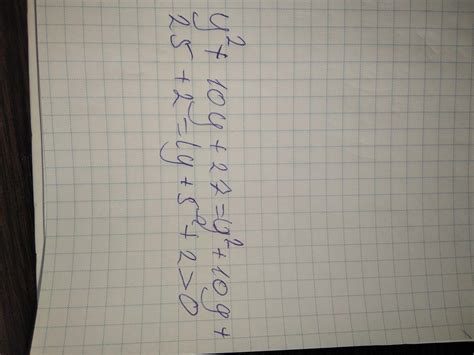 y² + 10y + 27 = y² + 10y +
25 + 2 = (y + 5)² + 2 > 0